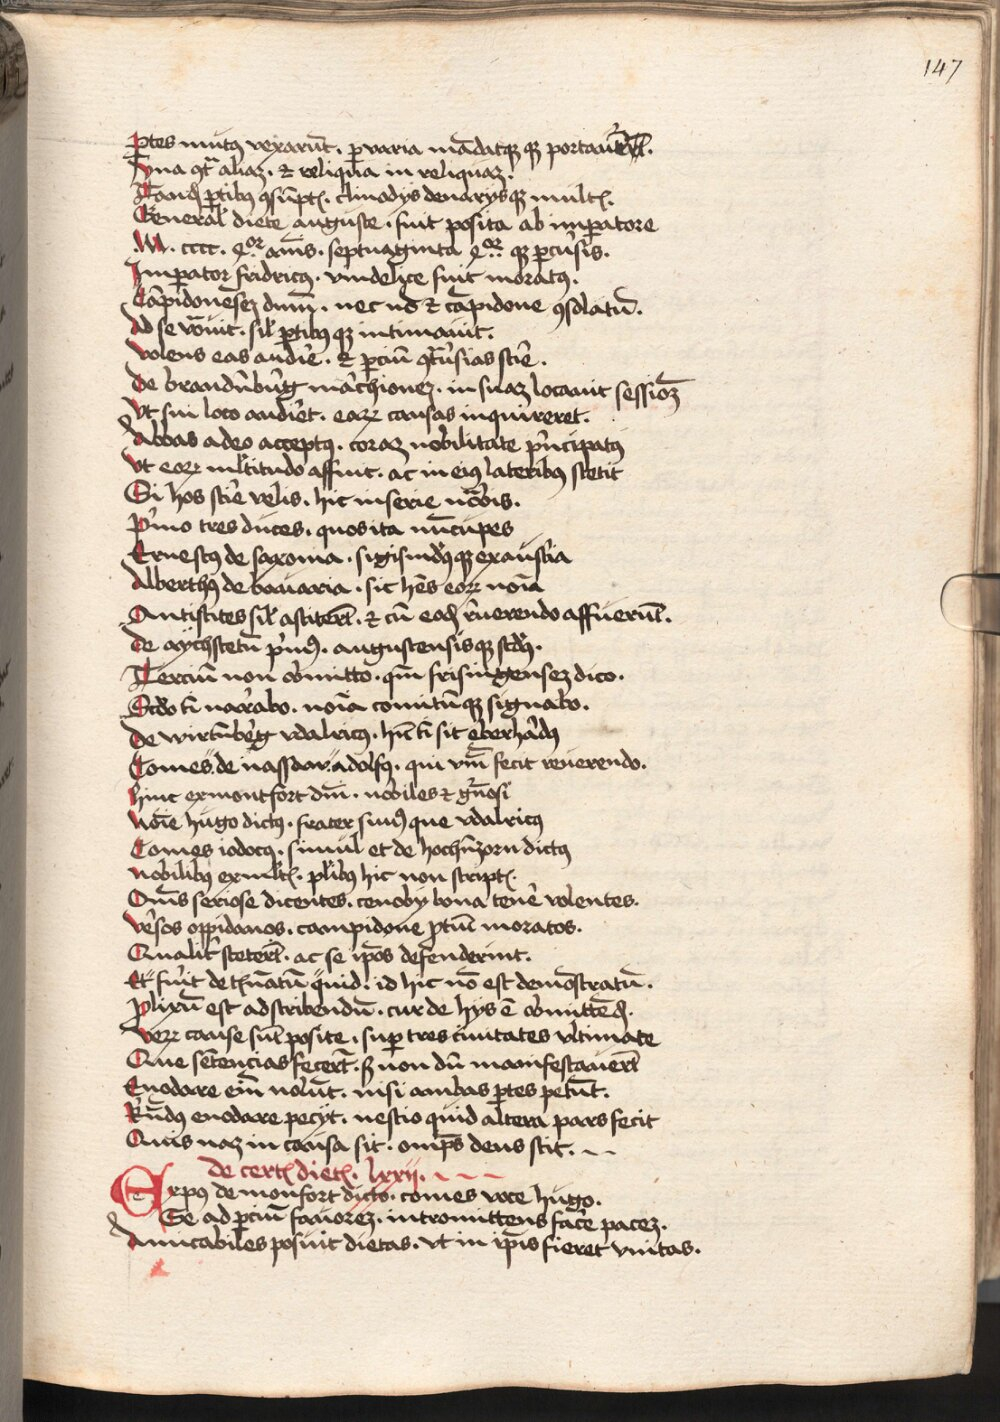 147
ꝑtes mutuo vexarūt . ꝑ varia mādatqꝫ qꝫ portauerūt.
Vna ꝯtͣ aliaꝫ . ⁊ reliqua in reliquaꝫ.
Tandē ꝑtibꝰ ꝯsūptꝭ . clinodys denarysqꝫ multꝭ.
General diete auguste . fuit posita ab imꝑatore
.M. cccc. qͦʳ am̄s . septuaginta qͦʳ qꝫ ꝑcūsis.
Imꝑator fridricꝰ . vindelice fuit moratꝰ.
Cāpidonēseꝫ dnm̄ . nec nō ⁊ cāpidone ꝯsolatū.
Ad se vōuit . sil ꝑtibꝰ qꝫ intimauit.
Volens eas audīe . ⁊ ꝑciū ꝯtͦūsias scīe.
De brandūbūg māchioneꝫ . in suaꝫ locauit sessiōꝫ
Vt sui loco audīet . eaꝝ causas inquireret.
Abbas adeo acceptꝰ . coraꝫ nobilitate pͥncipatꝰ
Vt eoꝝ ml̄titudo affuit . ac in eiꝰ lateribꝰ stetit
Si hos scīe velis . hic in serie nōbis.
Pͥmo tres duces . quos ita nūcupes
Ernestꝰ de saxonia . sigismūdꝰ qꝫ ex austͥia
Alberthꝰ de bauaria . sic hēs eoꝝ noīa
Antistites sil astiterūt . ⁊ cū eodē r̄uerendo affuerūt.
De aychstetū pͥmꝰ . augustensis qꝫ scd̄ꝰ.
Terciū non om̄itto . qm̄ frisingenseꝫ dico.
Scd̄o tn̄ narrabo . noīa comitū qꝫ signabo.
De wirtūbēg vdalricꝰ . huic tn̄ sit eberhādꝰ
Comes de nassaw adolfꝰ . qui vnū fecit reuerendo.
Hinc ex montfort dnī . nobiles ⁊ gn̄osi
Noīe hugo dictꝰ . frater suus que vdalricꝰ
Comes iodocꝰ . simul et de hochn̄zorn dictꝰ
Nobilibꝰ ex multꝭ . pl̄ibꝰ hic non scriptꝭ.
Om̄s seriose dicentes . cenoby bona tenē volentes.
Vēsos oppidanos . campidone ꝑtiū moratos.
Qualit̄ steterūt . ac se ip̄os defenderint.
Et fūit detꝭnatū quid . id hic nō est demōstratū.
Plixū est ad scribendū . cur de hys ē om̄ittēdū.
Veꝝ cause sūt posite . suꝑ tres ciuitates vltimate
Que sētencias fecerūt . sꝫ non dū manifestauerūt
Enodare eīm nolūt . nisi ambas ꝑtes petūt.
R̄ndꝰ enodare pecyt . nestio quid altera pars fecit
Quis naꝫ in causa sit . omp̄s deus scit.
de certꝭ dietꝭ. lxxii.
Expꝰ de monfort dicto . comes voce hugo.
Se ad ꝑciū fauoreꝫ . intromittens facē paceꝫ.
Amicabiles posuit dietas . vt in ip̄is fieret vnitas.